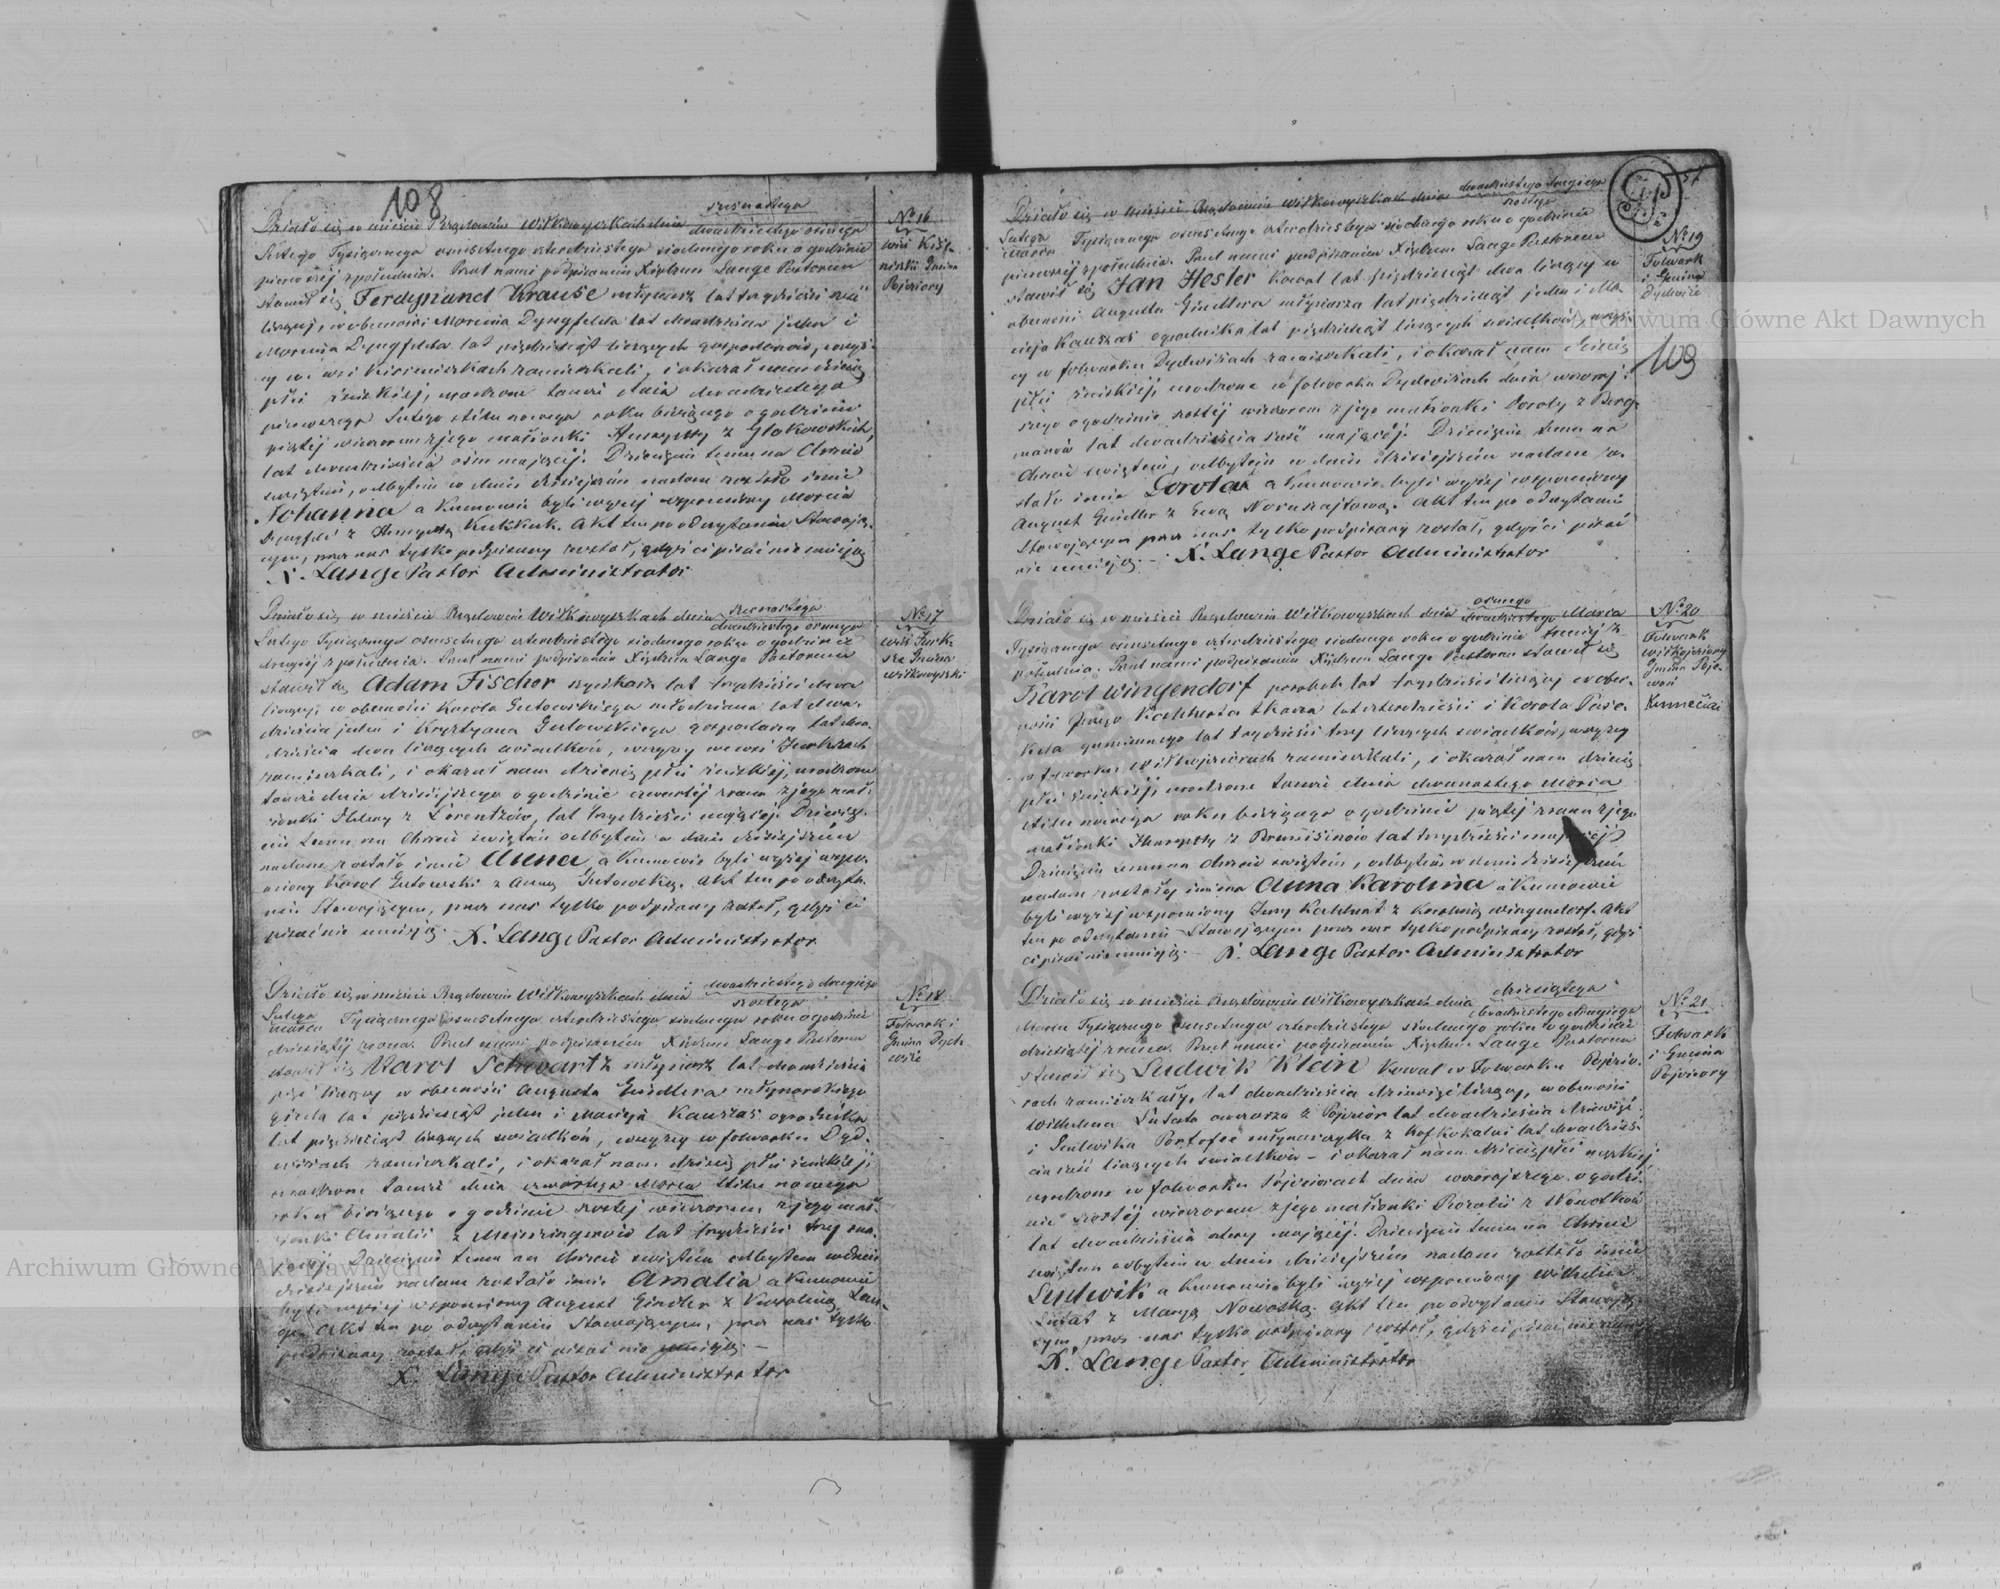 108
Działo się w mieście Rządowém Wiłkowyszkach dnia szesnastego
dwudziestego ósmego
Lutego Tysiącznego osmsetnego czterdziestego siódmego roku o godzinie
pierwszéj z południa. Przed nami podpisanym Xiędzem Lange Pastorem
stawił się Ferdynand Krause młynarz lat trzydzieści
liczący, w obecności Marcina Dyngfelda lat dwadzieścia jeden i
Marcina Dyngfelda lat pięćdziesiąt liczących gospodarów, wszys-
cy we wsi zamieszkali, i okazał nam dziecię
płci żeńskiéj, urodzone tamże dnia dwudziestego
pierwszego Lutego stilu nowego roku bieżącego o godzinie
piątéj wieczorem z jego małżonki Henryetty z
lat dwadzieścia ośm mającéj. Dziecięciu temu na Chrzcie
świętém, odbytém w dniu dzisiejszém nadane zostało imie
Johanna a Kumowie byli wyżéj wspomniony Marcin
Dyngfeld z Henryettą Kukkuk. Akt ten po odczytaniu Stawają-
cym, przez nas tylko podpisany został, gdyż ci pisać nie umieją
X. Lange Pastor Administrator
No 16
wieś
Gmina
Pojeziory
Działo się w mieście Rządowém Wiłkowyszkach dnia szesnastego
dwudziestego ósmego
Lutego Tysiącznego osmsetnego czterdziestego siódmego roku o godzinie
drugiéj z południa. Przed nami podpisanym Xiędzem Lange Pastorem
stawił się Adam Fischer lat trzydzieści dwa
liczący, w obecności Karola Gutowskiego młodziana lat dwa-
dzieścia jeden i Krystyana Gutowskiego gospodarza lat dwa-
dzieścia dwa liczących świadków, wszyscy we wsi
zamieszkali, i okazał nam dziecię płci żeńskiéj, urodzone
tamże dnia dzisiejszego o godzinie czwartéj zrana z jego mał-
żonki Heleny z Lorentzów, lat trzydzieści mającéj. Dziecię-
ciu temu na Chrzcie świętém odbytém w dniu dzisiejszém
nadane zostało imie Anna, a Kumowie byli wyżéj wspo-
mniony Karol Gutowski z Anną Gutowską. Akt ten po odczyta-
niu Stawającym, przez nas tylko podpisany został, gdyż ci
pisać nie umieją. X. Lange Pastor Administrator
No 17
wieś
Gmina
Wiłkowyszki
Działo się w mieście Rządowém Wiłkowyszkach dnia dwudziestego drugiego
szóstego
Lutego
Marca Tysiącznego osmsetnego czterdziestego siódmego roku o godzinie
dziesiątéj zrana. Przed nami podpisanym Xiędzem Lange Pastorem
stawił się Karol Schwartz młynarz lat dwadzieścia
pięć liczący w obecności Augusta Gindlera młynarskiego
lat pięćdziesiąt jeden i Macieja Kauszas ogrodnika
lat pięćdziesiąt liczących świadków, wszyscy w folwarku Dyd-
wiżach zamieszkali, i okazał nam dziecię płci żeńskiéj,
urodzone tamże dnia czwartego Marca stilu nowego
roku bieżącego o godzinie szóstéj wieczorem z jego mał-
żonki Amalii z lat trzydzieści trzy ma-
jącéj. Dziecięciu temu na Chrzcie świętém odbytém w dniu
dzisiejszém nadane zostało imie Amalia a Kumowie
byli wyżéj wspomniony August Gindler z Karoliną Lan-
ge. Akt ten po odczytaniu Stawającym, przez nas tylko
podpisany został, gdyż ci pisać nie umieją. —
X. Lange Pastor Administrator
No 18
Folwark i
Gmina Dyd-
wiże
Działo się w mieście Rządowém Wiłkowyszkach dnia dwudziestego drugiego
szóstego
Lutego
Marca Tysiącznego osmsetnego czterdziestego siódmego roku o godzinie
pierwszéj z południa. Przed nami podpisanym Xiędzem Lange Pastorem
stawił się Jan Hesler Kowal lat pięćdziesiąt dwa liczący w
obecności Augusta Gindlera młynarza lat pięćdziesiąt jeden i Ma-
cieja Kauszas ogrodnika lat pięćdziesiąt liczących świadków, wszys-
cy w folwarku Dydwiżach zamieszkali, i okazał nam dziecię
płci żeńskiéj, urodzone w folwarku Dydwiżach dnia wczoraj-
szego o godzinie szóstéj wieczorem z jego małżonki Doroty z Berg-
manów lat dwadzieścia sześć mającéj. Dziecięciu temu na
Chrzcie świętém, odbytém w dniu dzisiejszém nadane zo-
stało imie Dorota a Kumowie byli wyżéj wspomniony
August Gindler z Ewą. Akt ten po odczytaniu
Stawającym przez nas tylko podpisany został, gdyż ci pisać
nie umieją. — X. Lange Pastor Administrator
No 19
Folwark
i Gmina
Dydwiże
109
Działo się w mieście Rządowém Wiłkowyszkach dnia ósmego
dwudziestego Marca
Tysiącznego osmsetnego czterdziestego siódmego roku o godzinie trzeciéj z
południa. Przed nami podpisanym Xiędzem Lange Pastorem stawił się
Karol Wingendorf parobek lat trzydzieści liczący w obec-
ności Jerzego Kahlnata tkacza lat czterdzieści i Karola
gumiennego lat trzydzieści trzy liczących świadków, wszyscy
w folwarku zamieszkali, i okazał nam dziecię
płci żeńskiéj, urodzone tamże dnia dwunastego Marca
stilu nowego roku bieżącego o godzinie piątéj zrana z jego
małżonki Henryetty z lat trzydzieści mającéj
Dziecięciu temu na Chrzcie świętém, odbytém w dniu dzisiejszém
nadane zostały imiona Anna Karolina a Kumowie
byli wyżéj wspomniony Jerzy Kahlnat z Karoliną Wingendorf. Akt
ten po odczytaniu Stawającym przez nas tylko podpisany został, gdyż
ci pisać nie umieją. — X. Lange Pastor Administrator
No 20
Folwark
Gmina
Działo się w mieście Rządowém Wiłkowyszkach dnia dziesiątego
dwudziestego drugiego
Marca Tysiącznego osmsetnego czterdziestego siódmego roku o godzinie
dziesiątéj zrana. Przed nami podpisanym Xiędzem Lange Pastorem
stawił się Ludwik Klein Kowal w Folwarku Pojezio-
rach zamieszkały, lat dwadzieścia dziewięć liczący, w obecności
Wilhelma owczarza z Pojezior lat dwadzieścia dziewięć
i Ludwika młynarczyka z lat dwadzieś-
cia sześć liczących świadków — i okazał nam dziecię płci męzkiéj
urodzone w folwarku Pojeziorach dnia wczorajszego o godzi-
nie szóstéj wieczorem z jego małżonki Rozalii z
lat dwadzieścia cztery mającéj. Dziecięciu temu na Chrzcie
świętém odbytém w dniu dzisiejszém nadane zostało imie
Ludwik a Kumowie byli wyżéj wspomniony Wilhelm
z Maryą. Akt ten po odczytaniu Stawają-
cym, przez nas tylko podpisany został, gdyż ci pisać nie umieją
X. Lange Pastor Administrator
No 21
Folwark
i Gmina
Pojeziory
Archiwum Główne Akt Dawnych
Archiwum Główne Akt Dawnych